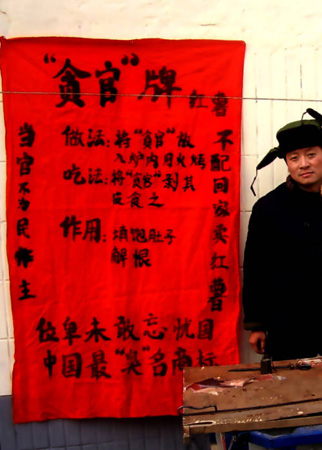 "贪官"牌 红薯
当官不为民作主
做法:将"贪官"放
入炉内用火烤
吃法:将"贪官"剥其
皮食之
作用:填饱肚子
解恨
不配回家卖红薯
位卑未敢忘忧国
中国最"臭"名商标